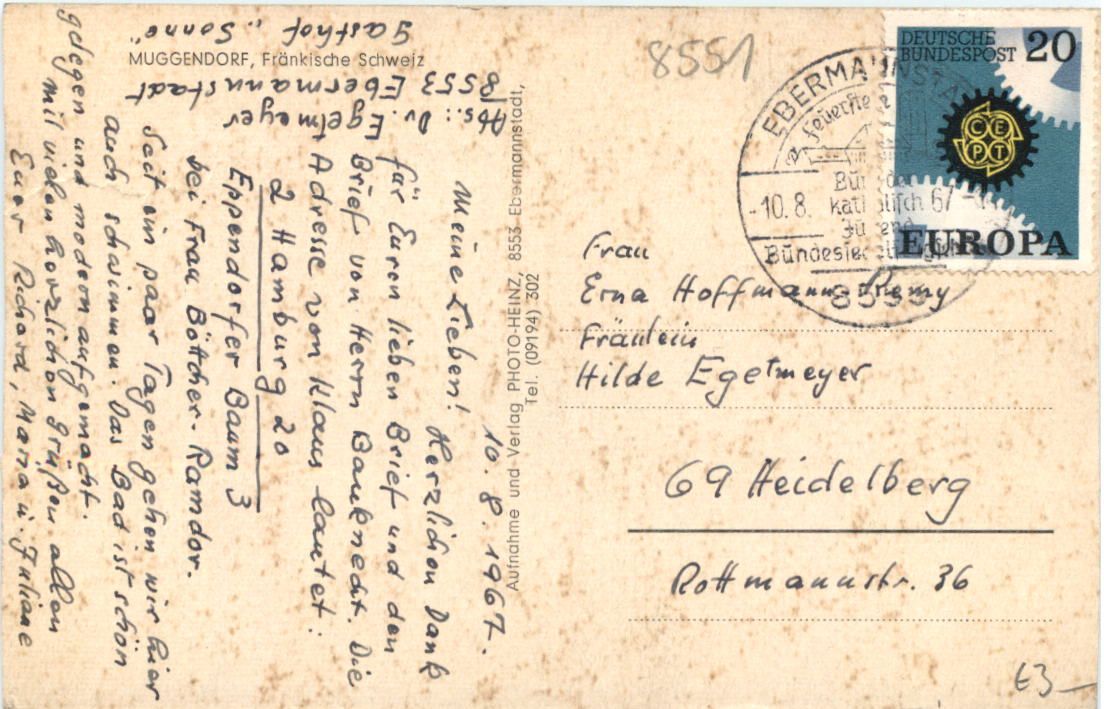 MUGGENDORF, Fränkische Schweiz
Abs.: Dr. Egetmeyer
8553 Ebermannstadt
Gasthof „Sonne"
10.8.1967.
Meine Lieben! Herzlichen Dank
für Euren lieben Brief und den
Brief von Herrn Bauknecht. Die
Adresse von Klaus lautet:
2 Hamburg 20
Eppendorfer Baum 3
bei Frau Böttcher-Ramdor.
Seit ein paar Tagen gehen wir hier
auch schwimmen. Das Bad ist schön
gelegen und modern aufgemacht.
Mit vielen herzlichen Grüßen allen
Euer Richard, Maria u. Juliane
Aufnahme und Verlag PHOTO-HEINZ, 8553 Ebermannstadt,
Tel. (09194) 302
8551
DEUTSCHE
BUNDESPOST 20
CEPT
EUROPA
EBERMANNSTADT
-10.8. 67
8553
Frau
Erna Hoffmann-Remy
Fräulein
Hilde Egetmeyer
69 Heidelberg
Rottmannstr. 36
E3